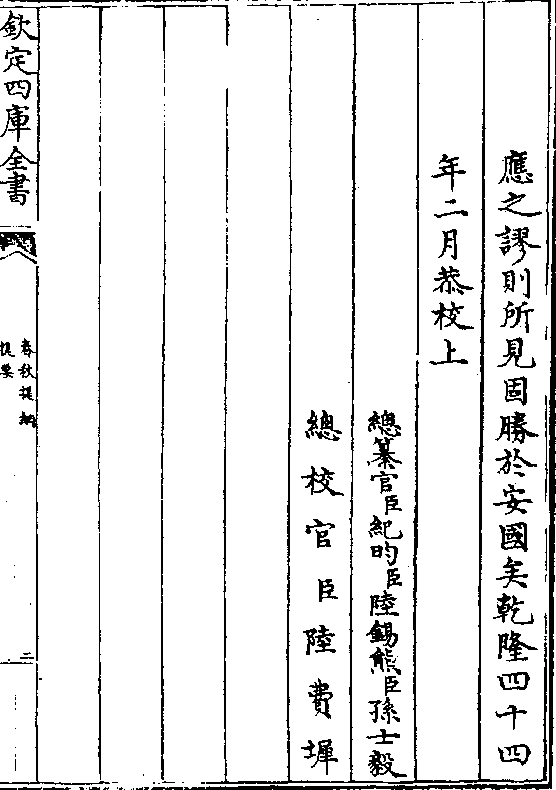 應之謬則所見固勝於安國矣乾隆四十四
年二月恭校上
總纂官臣紀昀臣陸錫熊臣孫士毅
總校官臣陸費墀
欽定四庫全書
春秋提綱
提要
二